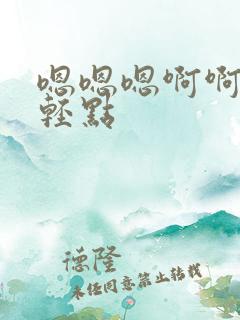 嗯嗯嗯啊啊
輕點
德隆
未经同意禁止转载